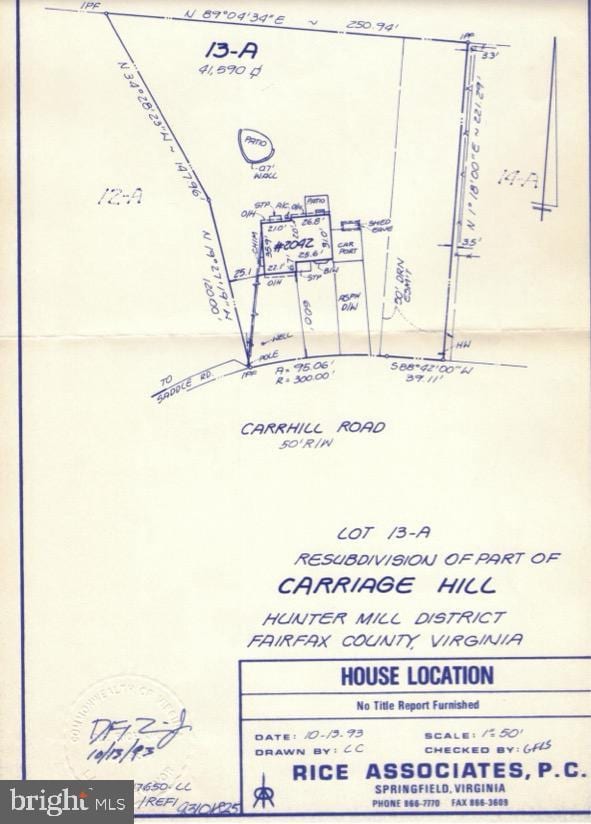 IPF
N 89°04'34"E ~ 250.94'
IPF
3.3'
13-A
41,590
N 34°28'23"W ~ 147.96'
N 1°18'00"E ~ 221.29'
PATIO
0.7'
WALL
12-A
14-A
STP
A/C
O/H
PATIO
O/H
21.0'
26.8'
SHED
EAVE
CHIM
35.9'
#2042
31.0'
CAR
PORT
3.5'
25.6'
22.1'
B/W
25.1
O/H
STP
N 19°27'19"W
120.00'
60.0'
ASPH
D/W
50' DRN
ESMT
WELL
HW
POLE
IPF
A = 95.06'
R = 300.00'
S88°42'00"W
39.11'
TO
SADDLE RD.
CARRHILL ROAD
50' R/W
LOT 13-A
RESUBDIVISION OF PART OF
CARRIAGE HILL
HUNTER MILL DISTRICT
FAIRFAX COUNTY, VIRGINIA
HOUSE LOCATION
No Title Report Furnished
DATE: 10-13-93 SCALE: 1"=50'
DRAWN BY: CC CHECKED BY:
RICE ASSOCIATES, P.C.
SPRINGFIELD, VIRGINIA
PHONE 866-7770 FAX 866-3609
COMMONWEALTH OF
10/13/93
7650-LL
bright MLS